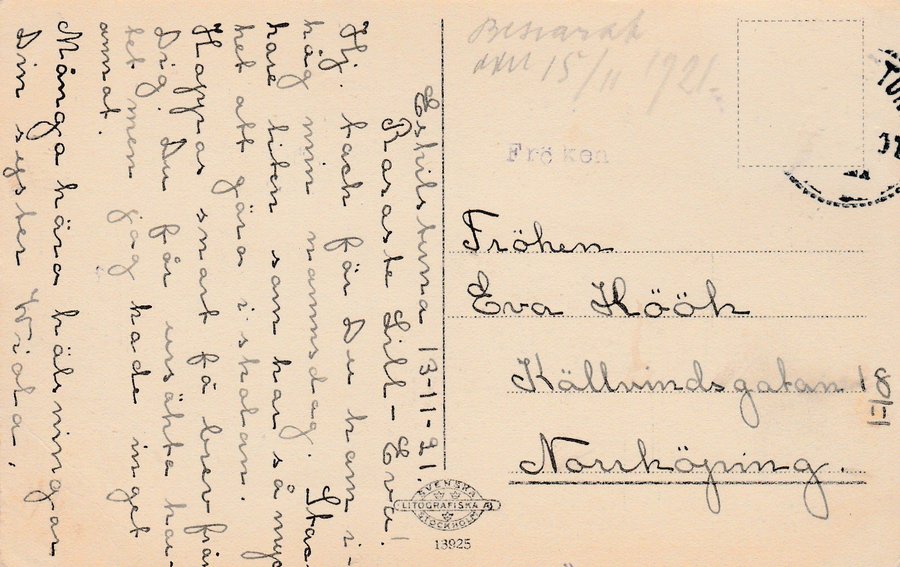 Eskilstuna 13-11-21.
Raraste Lill-Eva!
Hj. tack för Du kom i-
håg min namnsdag. Stac-
kare liten som har så myc-
ket att göra i skolan.
Hoppas snart få brev från
Dig. Du får ursäkta kor-
tet men jag hade inget
annat.
Många kära hälsningar
Din syster Frida.
Besvarat
den 15/11 1921.
Fröken
Fröken
Eva Höök
Källvindsgatan 18
Norrköping.
1=18
SVENSKA
LITOGRAFISKA AB
STOCKHOLM
13925